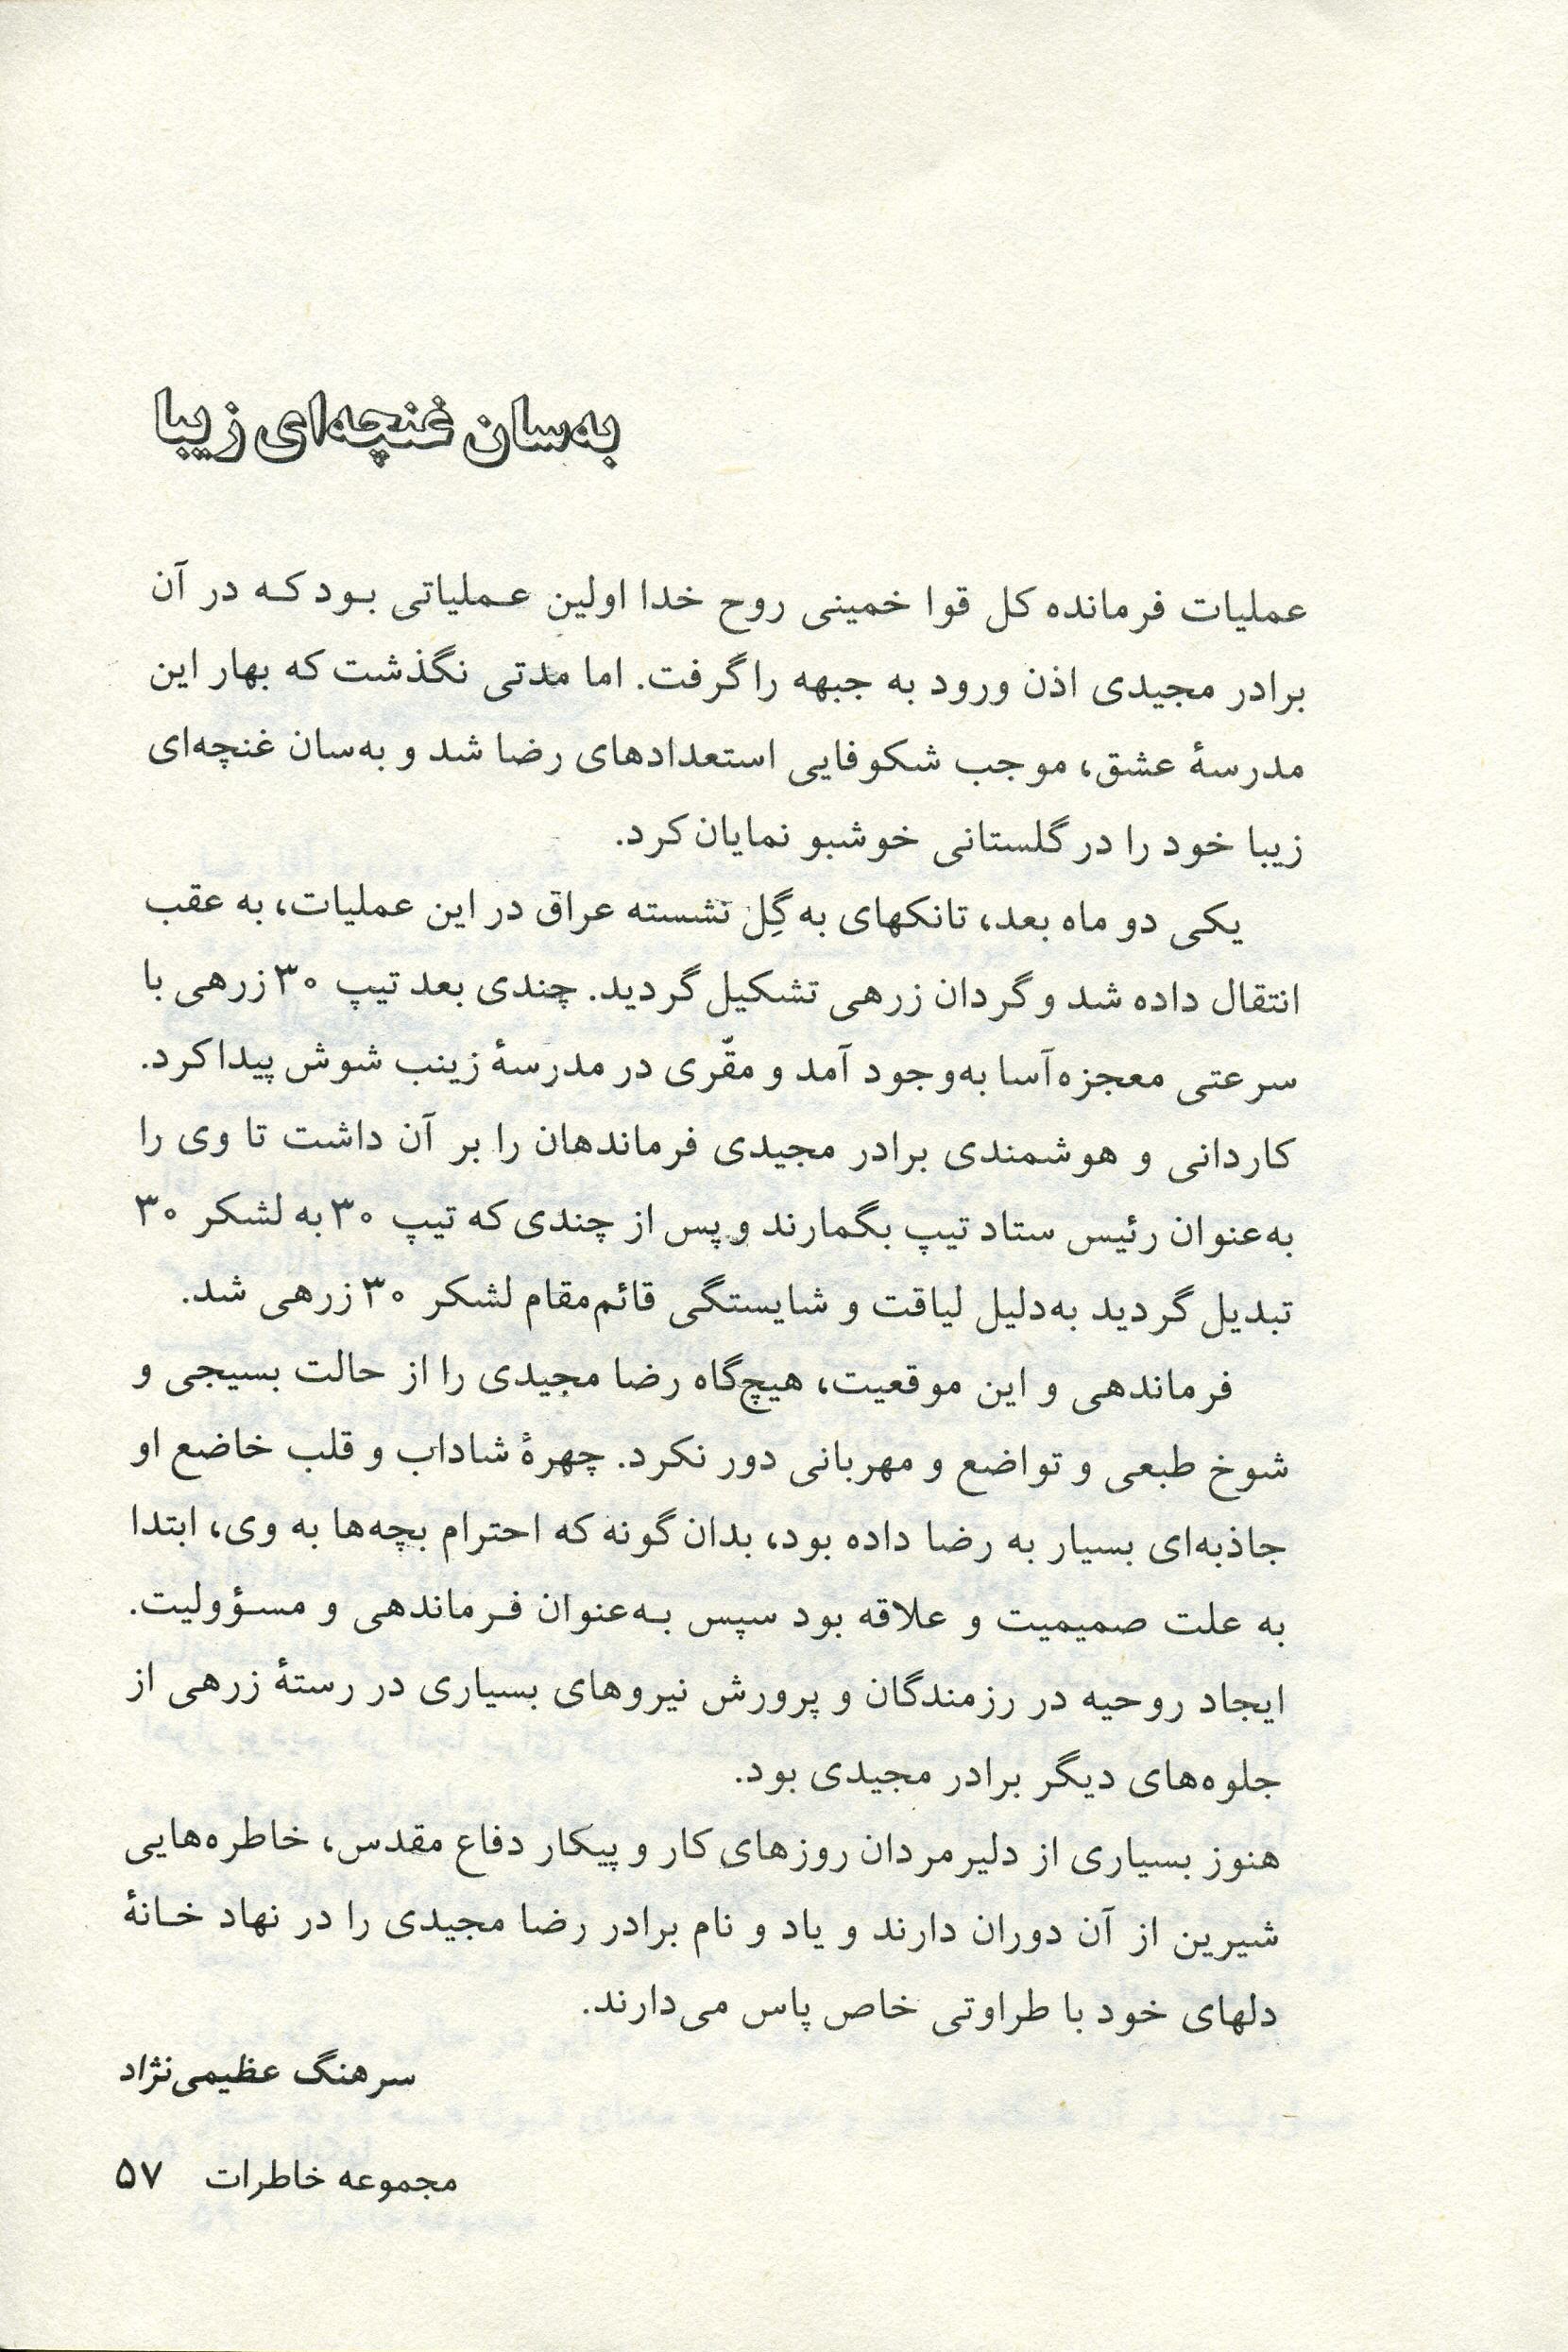 به‌سان غنچه‌ای زیبا
عملیات فرمانده کل قوا خمینی روح خدا اولین عملیاتی بود که در آن
برادر مجیدی اذن ورود به جبهه را گرفت. اما مدتی نگذشت که بهار این
مدرسهٔ عشق، موجب شکوفایی استعدادهای رضا شد و به‌سان غنچه‌ای
زیبا خود را در گلستانی خوشبو نمایان کرد.
یکی دو ماه بعد، تانکهای به گِل نشسته عراق در این عملیات، به عقب
انتقال داده شد و گردان زرهی تشکیل گردید. چندی بعد تیپ ۳۰ زرهی با
سرعتی معجزه‌آسا به‌وجود آمد و مقّری در مدرسهٔ زینب شوش پیدا کرد.
کاردانی و هوشمندی برادر مجیدی فرماندهان را بر آن داشت تا وی را
به‌عنوان رئیس ستاد تیپ بگمارند و پس از چندی که تیپ ۳۰ به لشکر ۳۰
تبدیل گردید به‌دلیل لیاقت و شایستگی قائم‌مقام لشکر ۳۰ زرهی شد.
فرماندهی و این موقعیت، هیچ‌گاه رضا مجیدی را از حالت بسیجی و
شوخ طبعی و تواضع و مهربانی دور نکرد. چهرهٔ شاداب و قلب خاضع او
جاذبه‌ای بسیار به رضا داده بود، بدان گونه که احترام بچه‌ها به وی، ابتدا
به علت صمیمیت و علاقه بود سپس به‌عنوان فرماندهی و مسؤولیت.
ایجاد روحیه در رزمندگان و پرورش نیروهای بسیاری در رستهٔ زرهی از
جلوه‌های دیگر برادر مجیدی بود.
هنوز بسیاری از دلیرمردان روزهای کار و پیکار دفاع مقدس، خاطره‌هایی
شیرین از آن دوران دارند و یاد و نام برادر رضا مجیدی را در نهاد خانهٔ
دلهای خود با طراوتی خاص پاس می‌دارند.
سرهنگ عظیمی‌نژاد
مجموعه خاطرات ۵۷